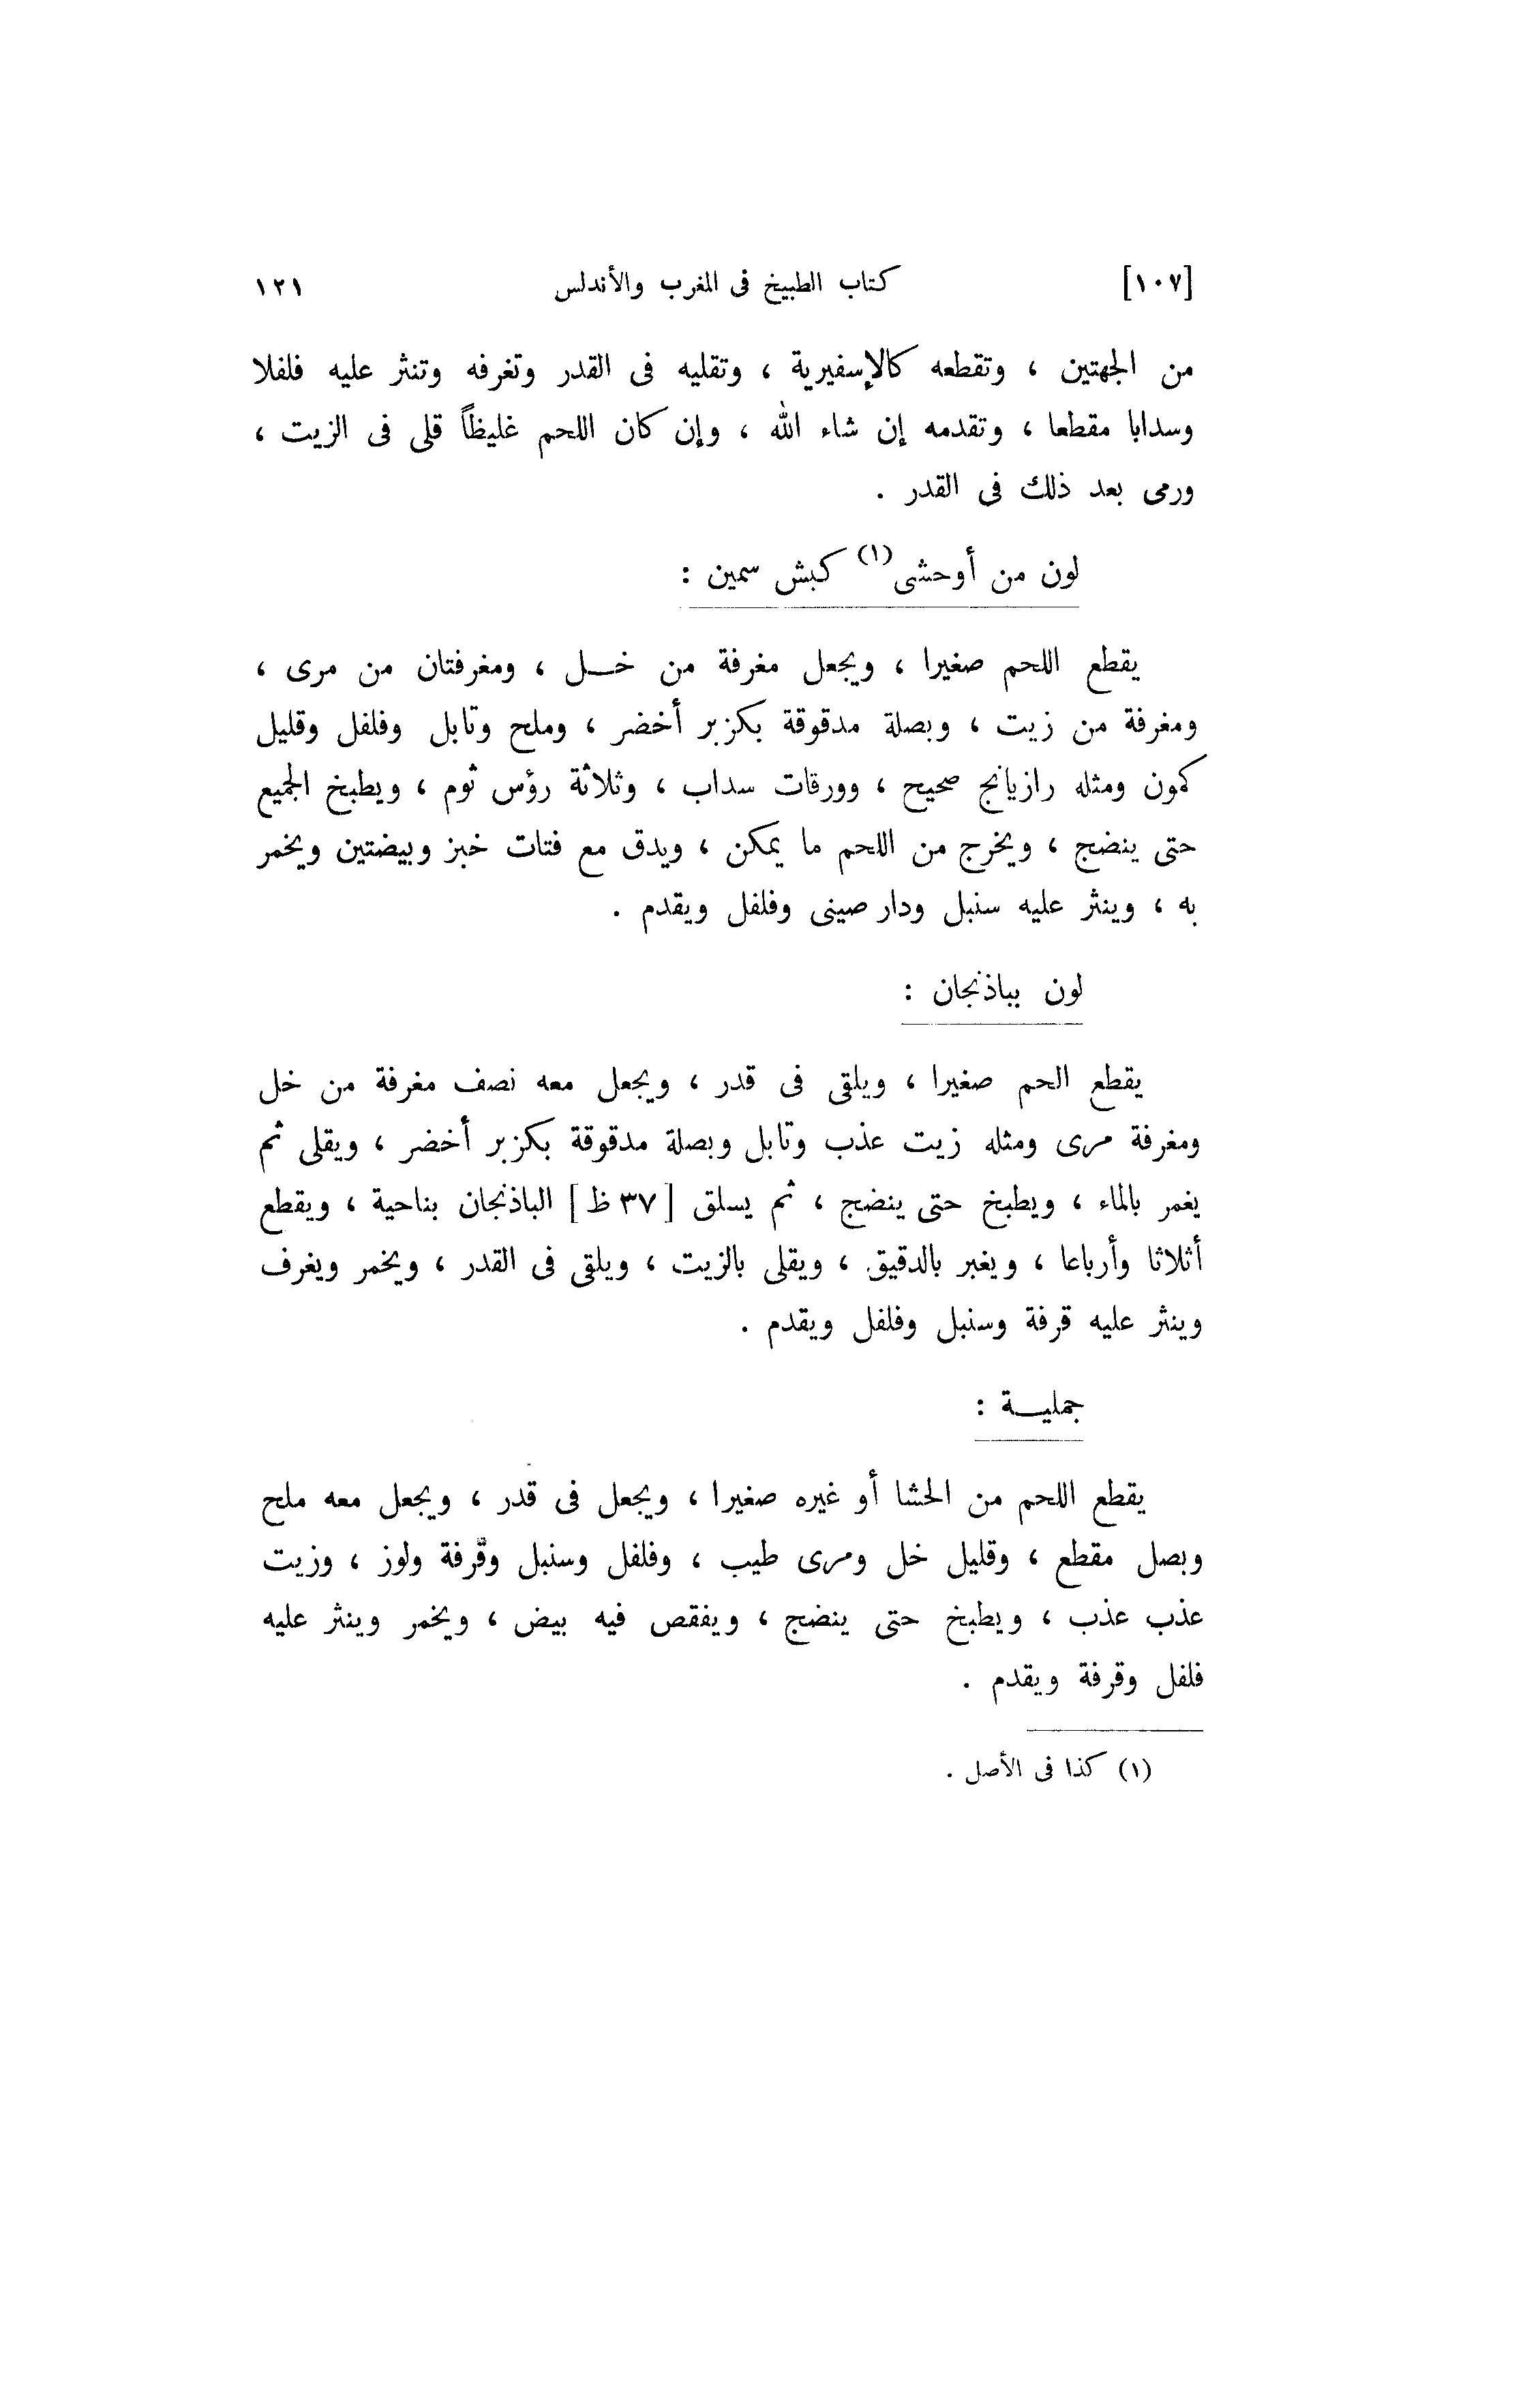 [١٠٧] كتاب الطبيخ فى المغرب والأندلس ١٢١
من الجهتين ، وتقطعه كالإسفيرية ، وتقليه فى القدر وتغرفه وتنثر عليه فلفلا
وسدابا مقطعا ، وتقدمه إن شاء الله ، وإن كان اللحم غليظاً قلى فى الزيت ،
ورمى بعد ذلك فى القدر .
لون من أوحشى(١) كبش سمين :
يقطع اللحم صغيرا ، ويجعل مغرفة من خل ، ومغرفتان من مرى ،
ومغرفة من زيت ، وبصلة مدقوقة بكزبر أخضر ، وملح وتابل وفلفل وقليل
كمون ومثله رازيانج صحيح ، وورقات سداب ، وثلاثة رؤس ثوم ، ويطبخ الجميع
حتى ينضج ، ويخرج من اللحم ما يمكن ، ويدق مع فتات خبز وبيضتين ويخمر
به ، وينثر عليه سنبل ودار صينى وفلفل ويقدم .
لون بباذنجان :
يقطع الحم صغيرا ، ويلقى فى قدر ، ويجعل معه نصف مغرفة من خل
ومغرفة مرى ومثله زيت عذب وتابل وبصلة مدقوقة بكزبر أخضر ، ويقلى ثم
يغمر بالماء ، ويطبخ حتى ينضج ، ثم يسلق [٣٧ ظ] الباذنجان بناحية ، ويقطع
أثلاثا وأرباعا ، ويغبر بالدقيق ، ويقلى بالزيت ، ويلقى فى القدر ، ويخمر ويغرف
وينثر عليه قرفة وسنبل وفلفل ويقدم .
جملية :
يقطع اللحم من الحشا أو غيره صغيرا ، ويجعل فى قدر ، ويجعل معه ملح
وبصل مقطع ، وقليل خل ومرى طيب ، وفلفل وسنبل وقرفة ولوز ، وزيت
عذب عذب ، ويطبخ حتى ينضج ، ويفقص فيه بيض ، ويخمر وينثر عليه
فلفل وقرفة ويقدم .
(١) كذا فى الأصل .